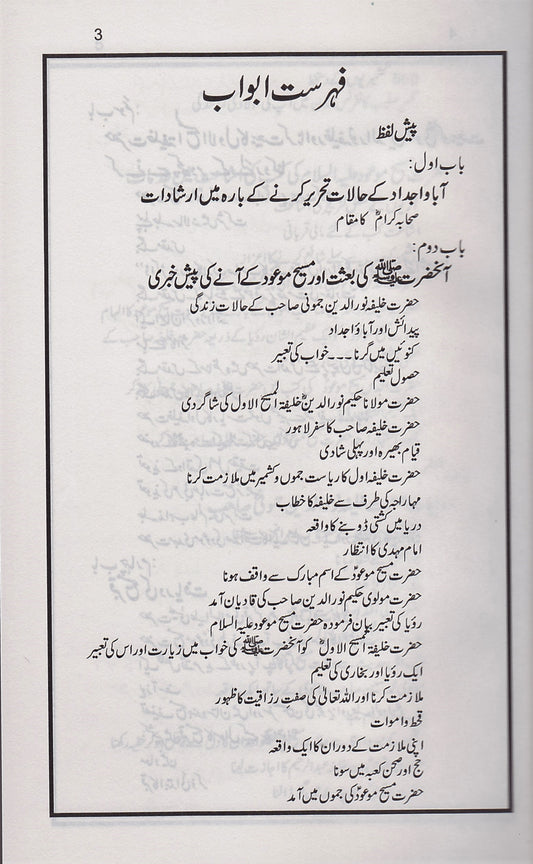 3
فہرست ابواب
پیش لفظ
باب اول:
آباؤ اجداد کے حالات تحریر کرنے کے بارہ میں ارشادات
صحابہ کرامؓ کا مقام
باب دوم:
آنحضرت ﷺ کی بعثت اور مسیح موعود کے آنے کی پیش خبری
حضرت خلیفہ نور الدین جمونی صاحب کے حالات زندگی
پیدائش اور آباؤ اجداد
کنوئیں میں گرنا ۔۔۔ خواب کی تعبیر
حصول تعلیم
حضرت مولانا حکیم نور الدینؓ خلیفۃ المسیح الاول کی شاگردی
حضرت خلیفہ صاحب کا سفر لاہور
قیام بھیرہ اور پہلی شادی
حضرت خلیفہ اول کا ریاست جموں و کشمیر میں ملازمت کرنا
مہاراجہ کی طرف سے خلیفہ کا خطاب
دریا میں کشتی ڈوبنے کا واقعہ
امام مہدی کا انتظار
حضرت مسیح موعودؑ کے اسم مبارک سے واقف ہونا
حضرت مولوی حکیم نور الدین صاحب کی قادیان آمد
رؤیا کی تعبیر بیان فرمودہ حضرت مسیح موعود علیہ السلام
حضرت خلیفۃ المسیح الاولؓ کو آنحضرت ﷺ کی خواب میں زیارت اور اس کی تعبیر
ایک رؤیا اور بخاری کی تعلیم
ملازمت کرنا اور اللہ تعالیٰ کی صفتِ رزاقیت کا ظہور
قحط و اموات
اپنی ملازمت کے دوران کا ایک واقعہ
حج اور صحن کعبہ میں سونا
حضرت مسیح موعودؑ کی جموں میں آمد